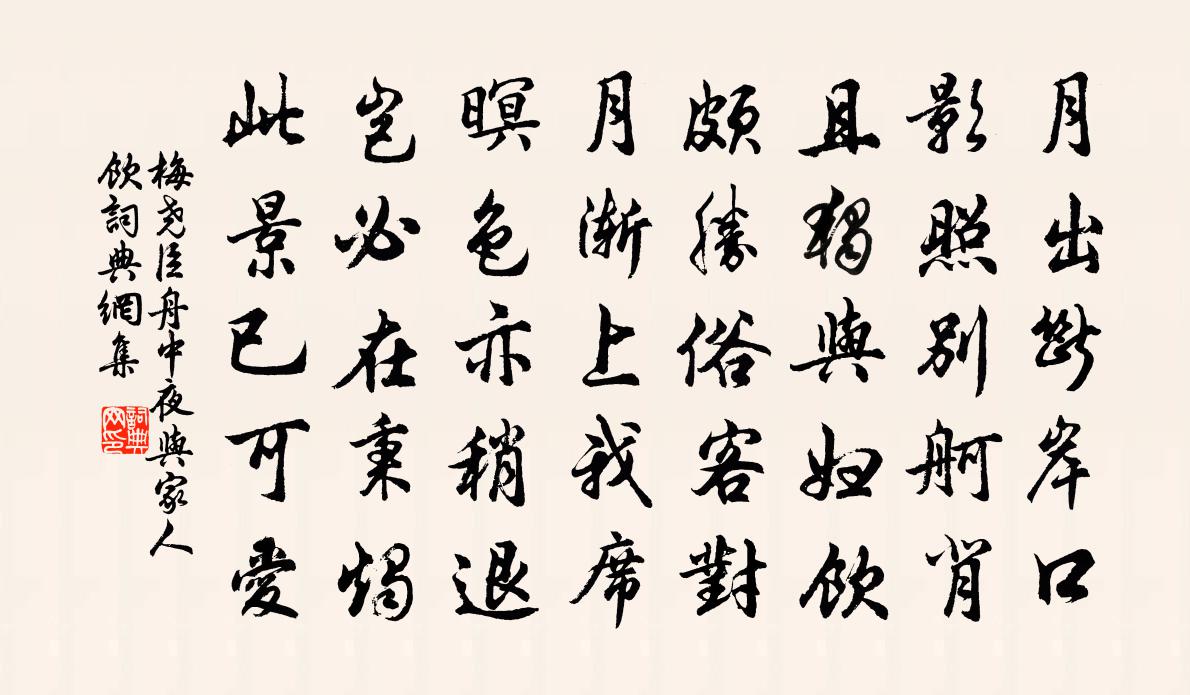 月出斷岸口
影照別舸背
且獨與婦飲
頗勝俗客對
月漸上我席
暝色亦稍退
豈必在秉燭
此景已可愛
梅堯臣舟中夜與家人
飲詞典網集
詞典
网印